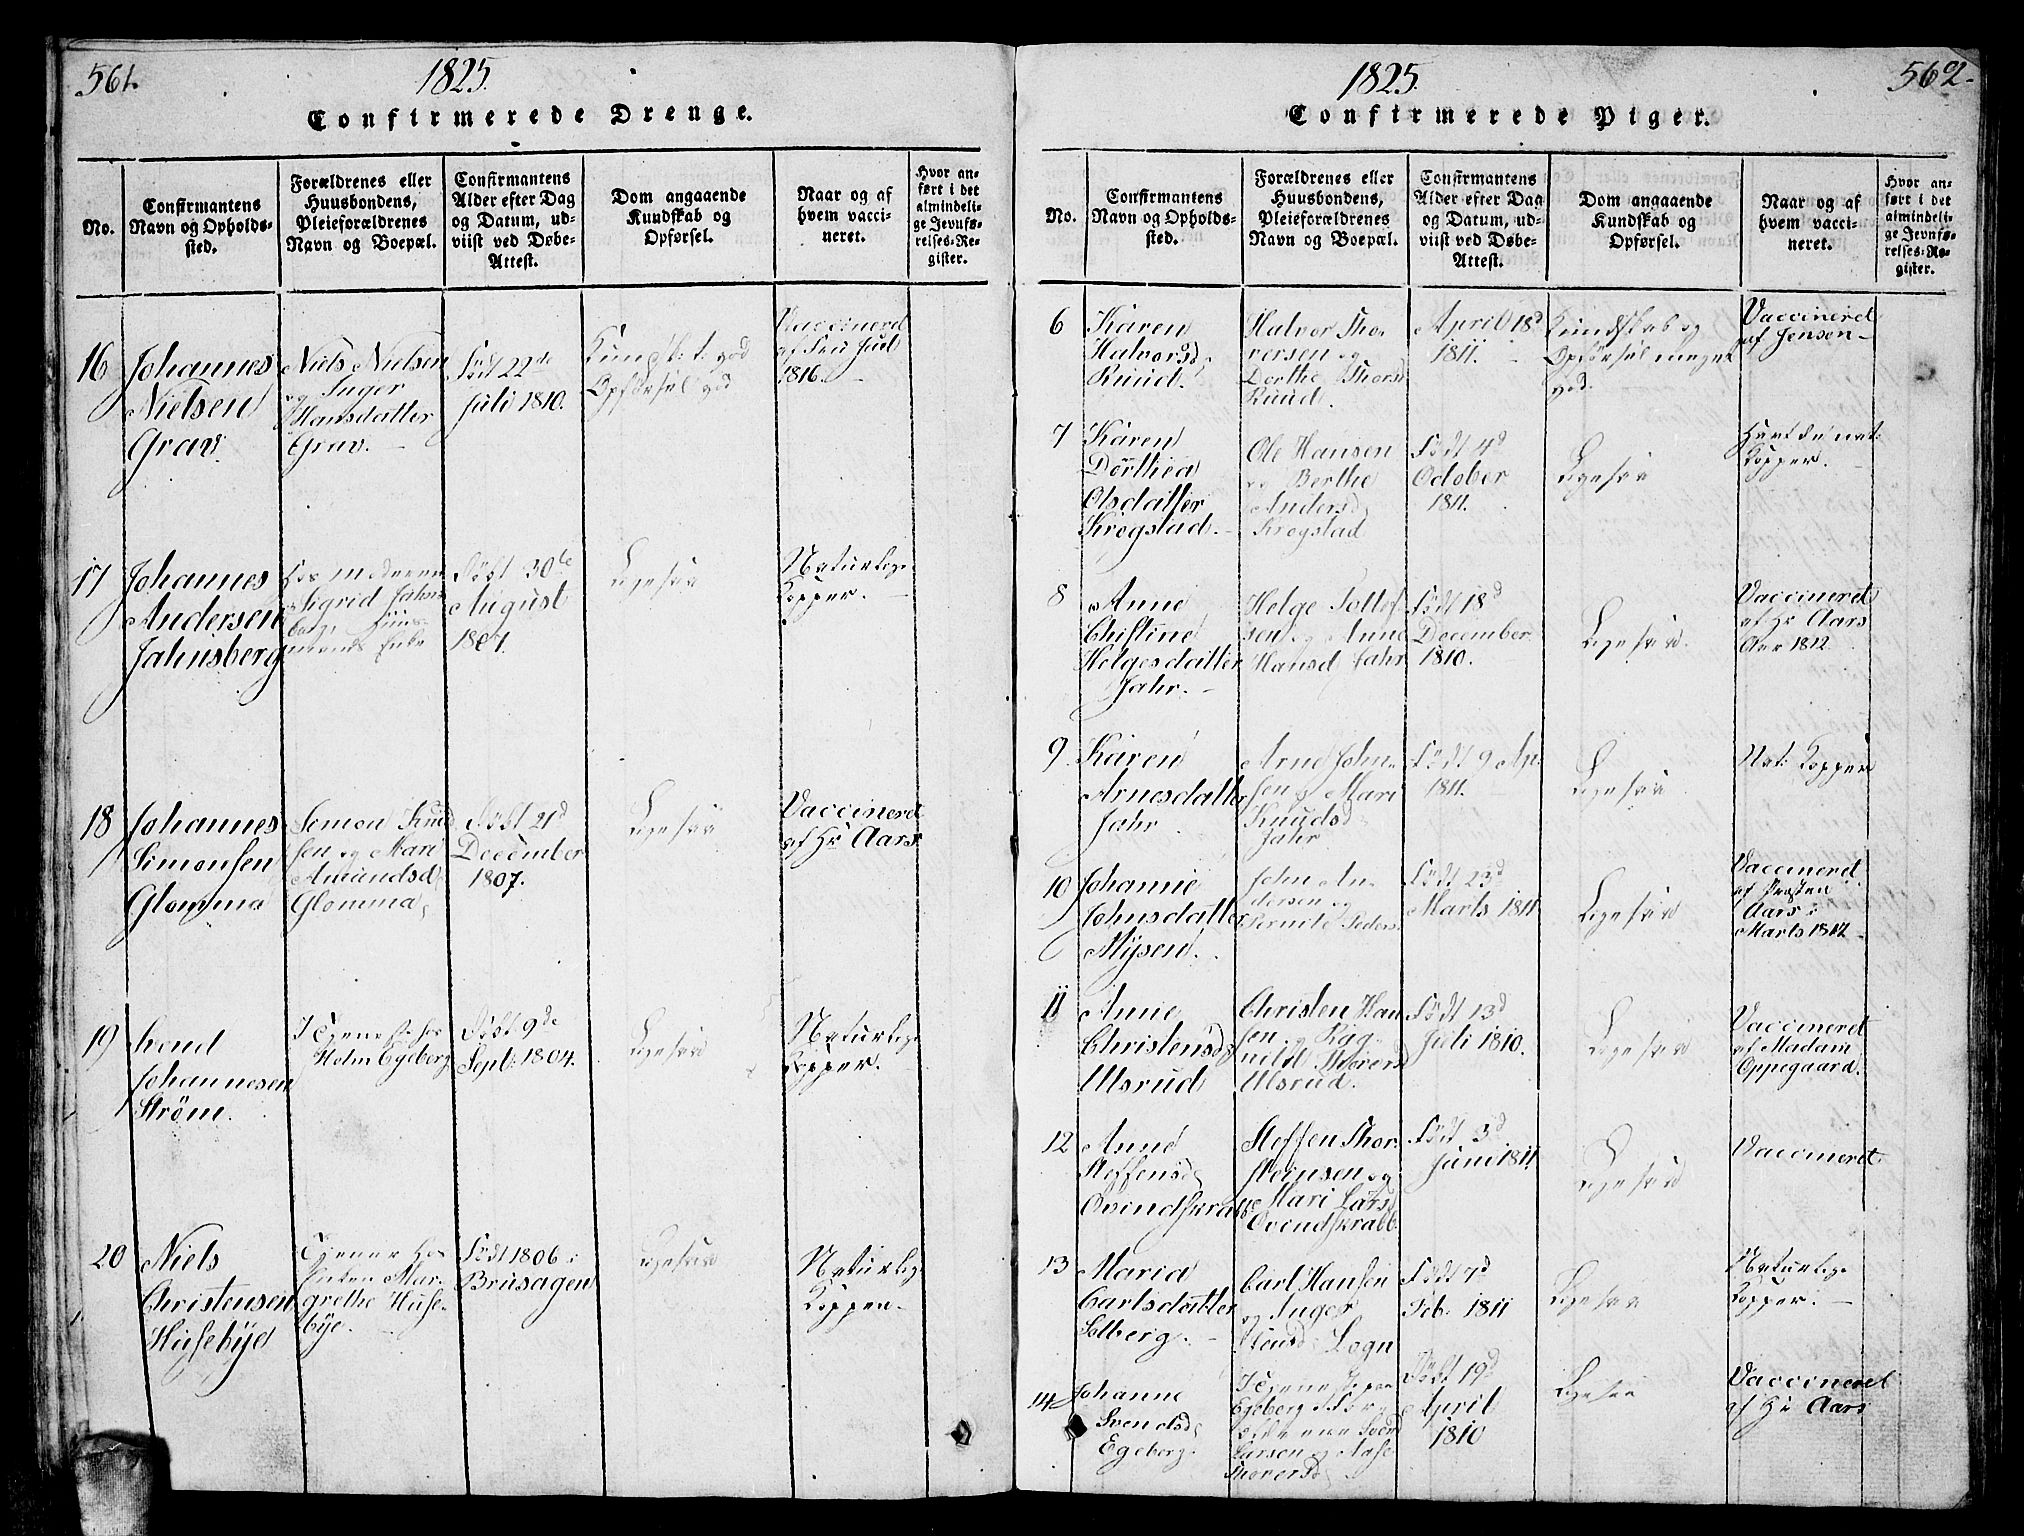 561.
1825.
Confirmerede Drenge.
No.
Confirmantens
Navn og Opholds-
sted.
Forældrenes eller
Huusbondens,
Pleieforældrenes
Navn og Boepæl.
Confirmantens
Alder efter Dag
og Datum, ud-
viist ved Døbe-
Attest.
Dom angaaende
Kundskab og
Opførsel.
Naar og af
hvem vacci-
neret.
Hvor an-
ført i det
almindeli-
ge Jevnfø-
relses-Re-
gister.
16
Johannes
Nielsen
Grav
Niels Nielsen
og Inger
Hansdatter
Grav.
Født 22de
Juli 1810.
Kundsk: t: god
Opførsel god
Vaccinerd
af
1816.
17
Johannes
Andersen
Jahnsberg
Hos Moderen
Sigrid Jahns
berg, Huus-
mands Enke
Født 30de
August
1807.
Ligesaa
Naturlige
Kopper.
18
Johannes
Simonsen
Glomma
Semon Knud
sen og Mari
Amundsd
Glomma
Født 21d
December
1807.
Ligesaa
Vaccineret
af Hr Aars
19
Johannesen
Strøm.
I Tjeneste hos
Holm Egeberg
Født 9de
Sept: 1804.
Ligesaa
Naturlige
Kopper.
20
Niels
Christensen
Husebye
Tjener hos
Enken Mar-
grethe Huse-
bye.
Født 1806 i
Brusagen
Ligesaa
Naturlige
Kopper.
1825.
562.
Confirmerede Piger.
No.
Confirmantens
Navn og Opholds-
sted.
Forældrenes eller
Huusbondens,
Pleieforældrenes
Navn og Boepæl.
Confirmantens
Alder efter Dag
og Datum, ud-
viist ved Døbe-
Attest.
Dom angaaende
Kundskab og
Opførsel.
Naar og af
hvem vacci-
neret.
Hvor an-
ført i det
almindeli-
ge Jevnfø-
relses-Re-
gister.
6
Karen
Halvorsd
Ruud.
Halvor Tho-
versen og
Dorthe Thorsd
Ruud.
April 18d
1811.
Kundskab og
Opførsel meget
god.
Vaccineret
af Jensen
7
Karen
Dorthea
Olsdatter
Krogstad.
Ole Hansen
og Berthe
Andersd
Krogstad
Født 4d
October
1811.
Ligesaa
Havt de nat:
Kopper.
8
Anne
Christine
Helgesdatter
Jahr.
Helge Tollef
sen og Anne
Hansd Jahr
Født 18d
December
1810.
Ligesaa
Vaccineret
af Hr Aars
Aar 1812
9
Karen
Arnesdatter
Jahr
Arne John-
sen og Mari
Knudsd
Jahr
Født 9 Ap.
1811.
Ligesaa
Nat: Kopper
10
Johanne
Johnsdatter
Mysen.
John An-
dersen og
Pernille Peders
Født 23d
Marts 1811
Ligesaa
Vaccineret
af Præsten
Aars i
Marts 1812
11
Anne
Christensd
Ulsrud
Christen Han
sen og Rag
nild Thorersd
Ulsrud.
Født 13d
Juli 1810.
Ligesaa
Vaccineret
af Madam
Oppegaard.
12
Anne
Steffensd
Ovindskrabb
Steffen Thor-
steinsen og
Mari Larsd
Ovindskrabb.
Født 3d
Juni 1811.
Ligesaa
Vaccineret
13
Maria
Carlsdatter
Solberg.
Carl Hansen
og Inger
Logn
Født 7d
Feb. 1811
Ligesaa
Naturlige
Kopper.
14
Johanne
Svendsd
Egeberg
I Tjeneste paa
Egeberg For-
ældrene Svend
Larsen og Aase
Thoversd
Født 19d
April
1810
Ligesaa
Vaccineret
af Hr Aars